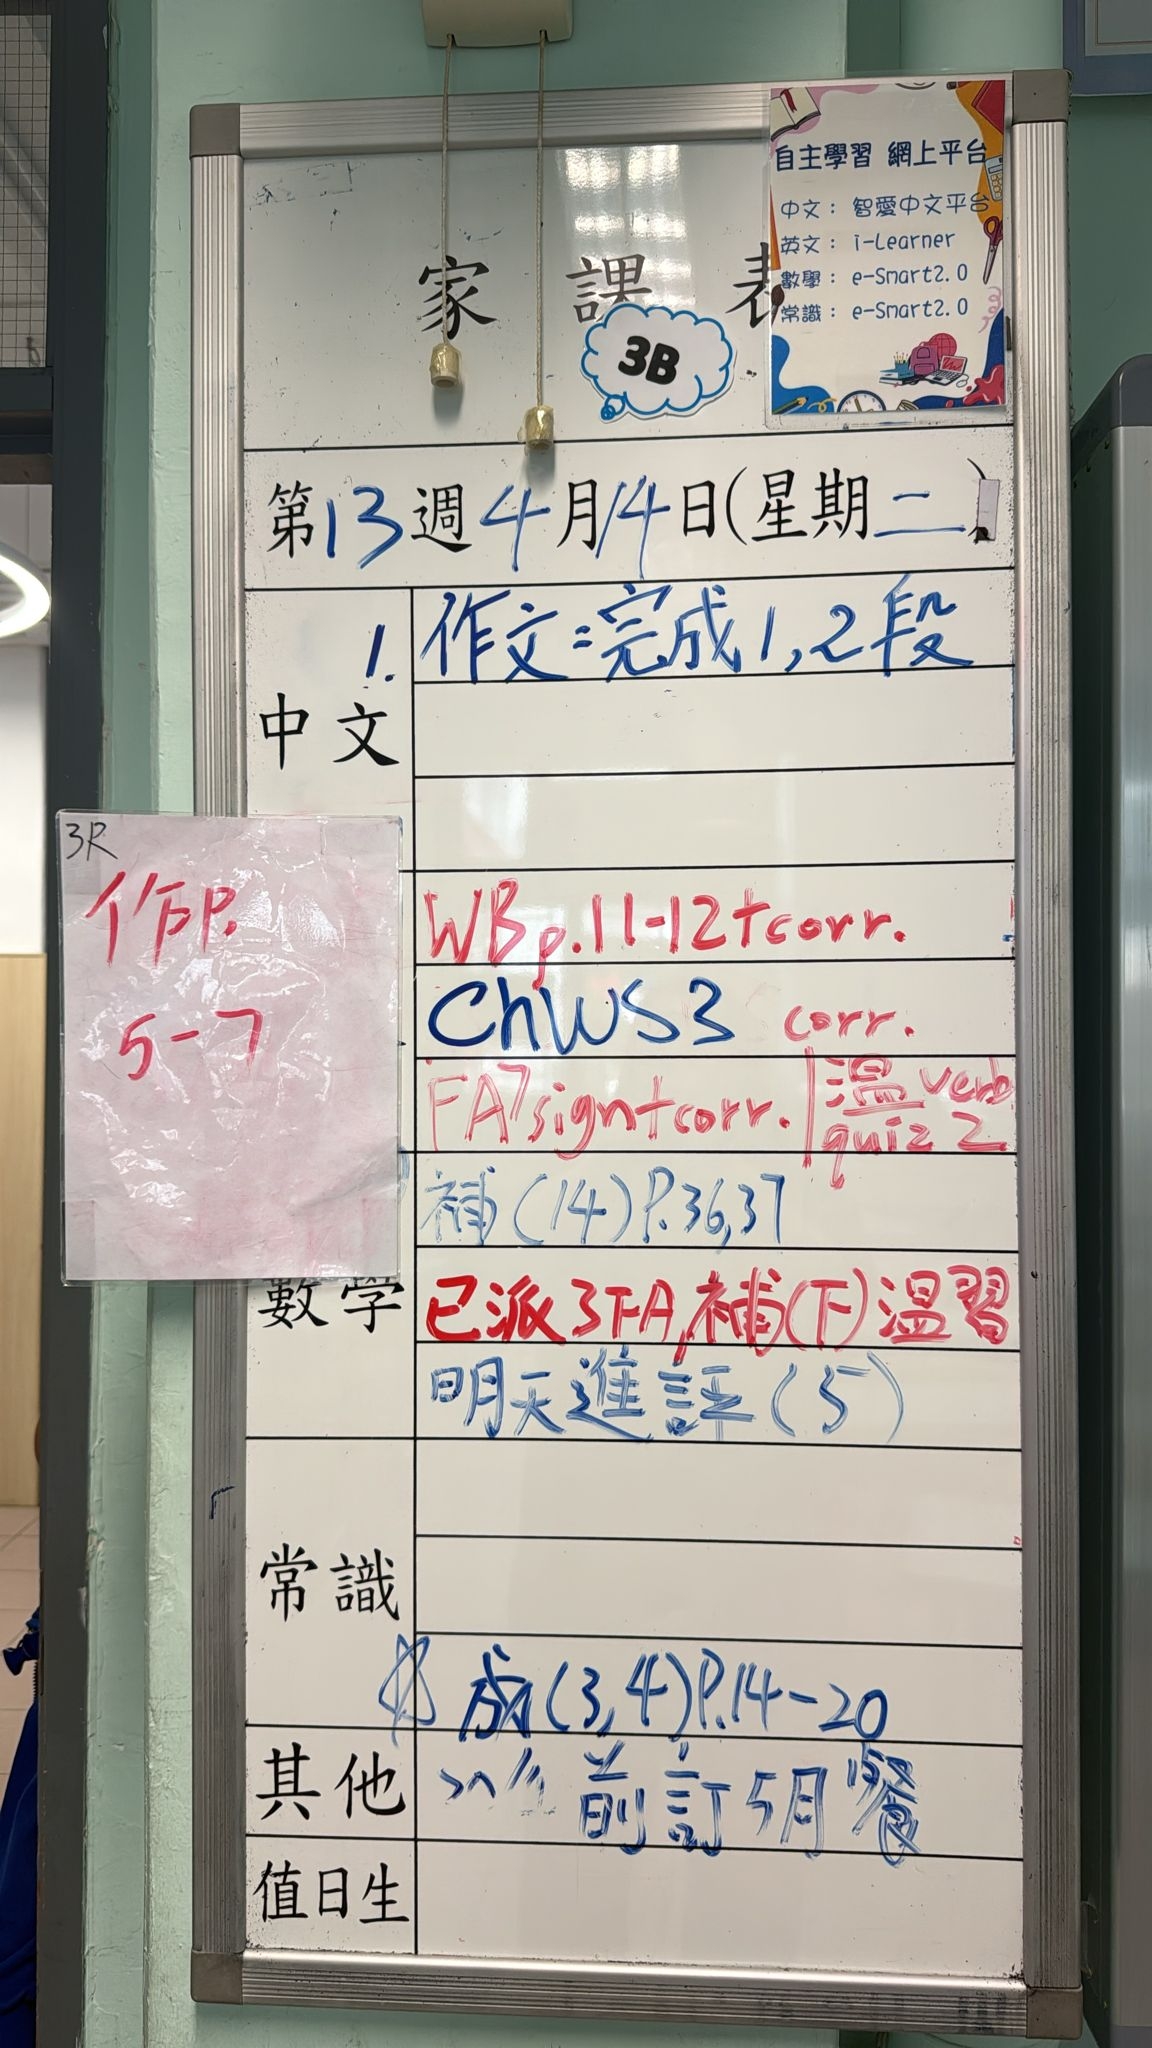 家課表
3B
自主學習 網上平台
中文： 智愛中文平台
英文： i-Learner
數學： e-Smart2.0
常識： e-Smart2.0
第13週4月14日(星期二)
中文
1. 作文：完成1,2段
3R
作P.
5-7
WB p.11-12+corr.
ChWS3 corr.
FA7sign+corr. 温verb quiz 2
數學
補(14)P.36,37
已派3FA,補(下)温習
明天進評(5)
常識
成(3,4)P.14-20
其他
前訂5月餐
值日生